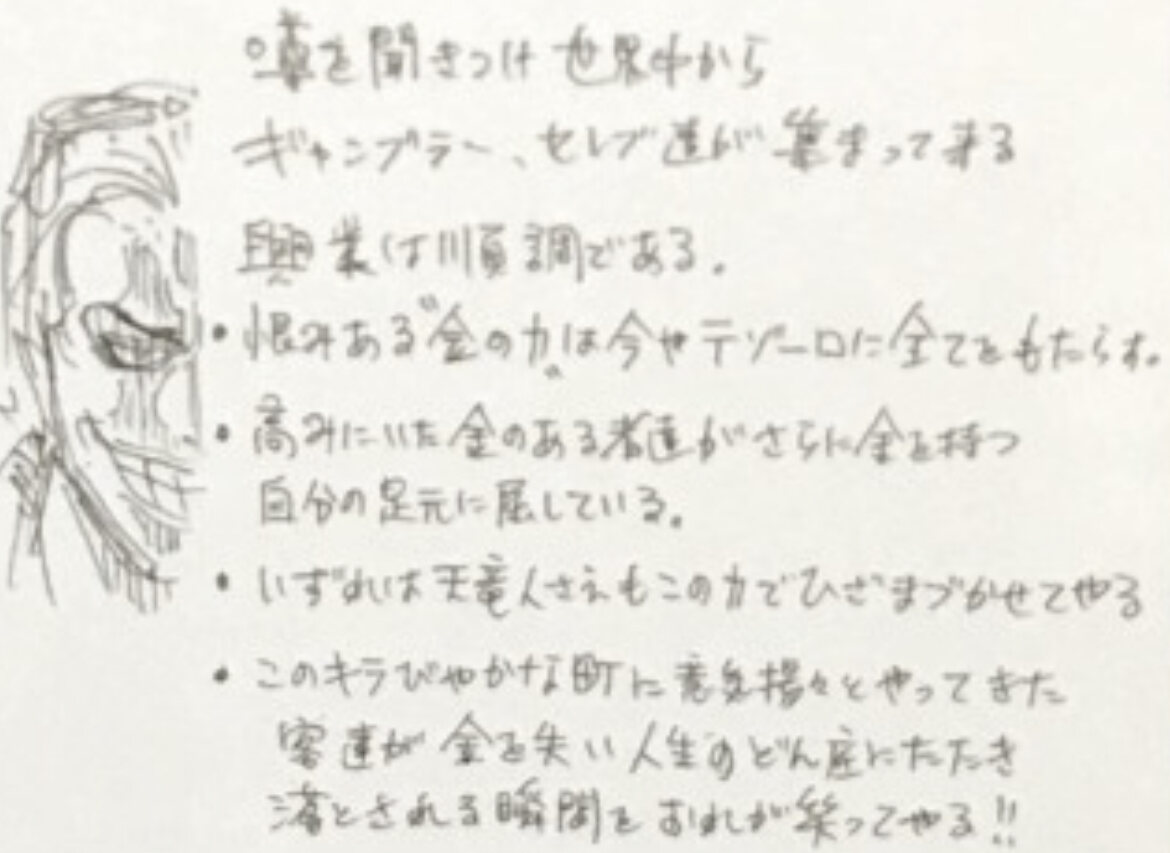 噂を聞きつけ 世界中から
ギャンブラー、セレブ達が 集まって来る
興業は順調である。
・恨みある"金の力"は今やテゾーロに全てをもたらす。
・高みにいた金のある者達がさらに金を持つ
自分の足元に屈している。
・いずれは天竜人さえもこの力でひざまづかせてやる
・このキラびやかな町に意気揚々とやってきた
客達が 金を失い 人生のどん底にたたき
落とされる瞬間を おれが笑ってやる!!